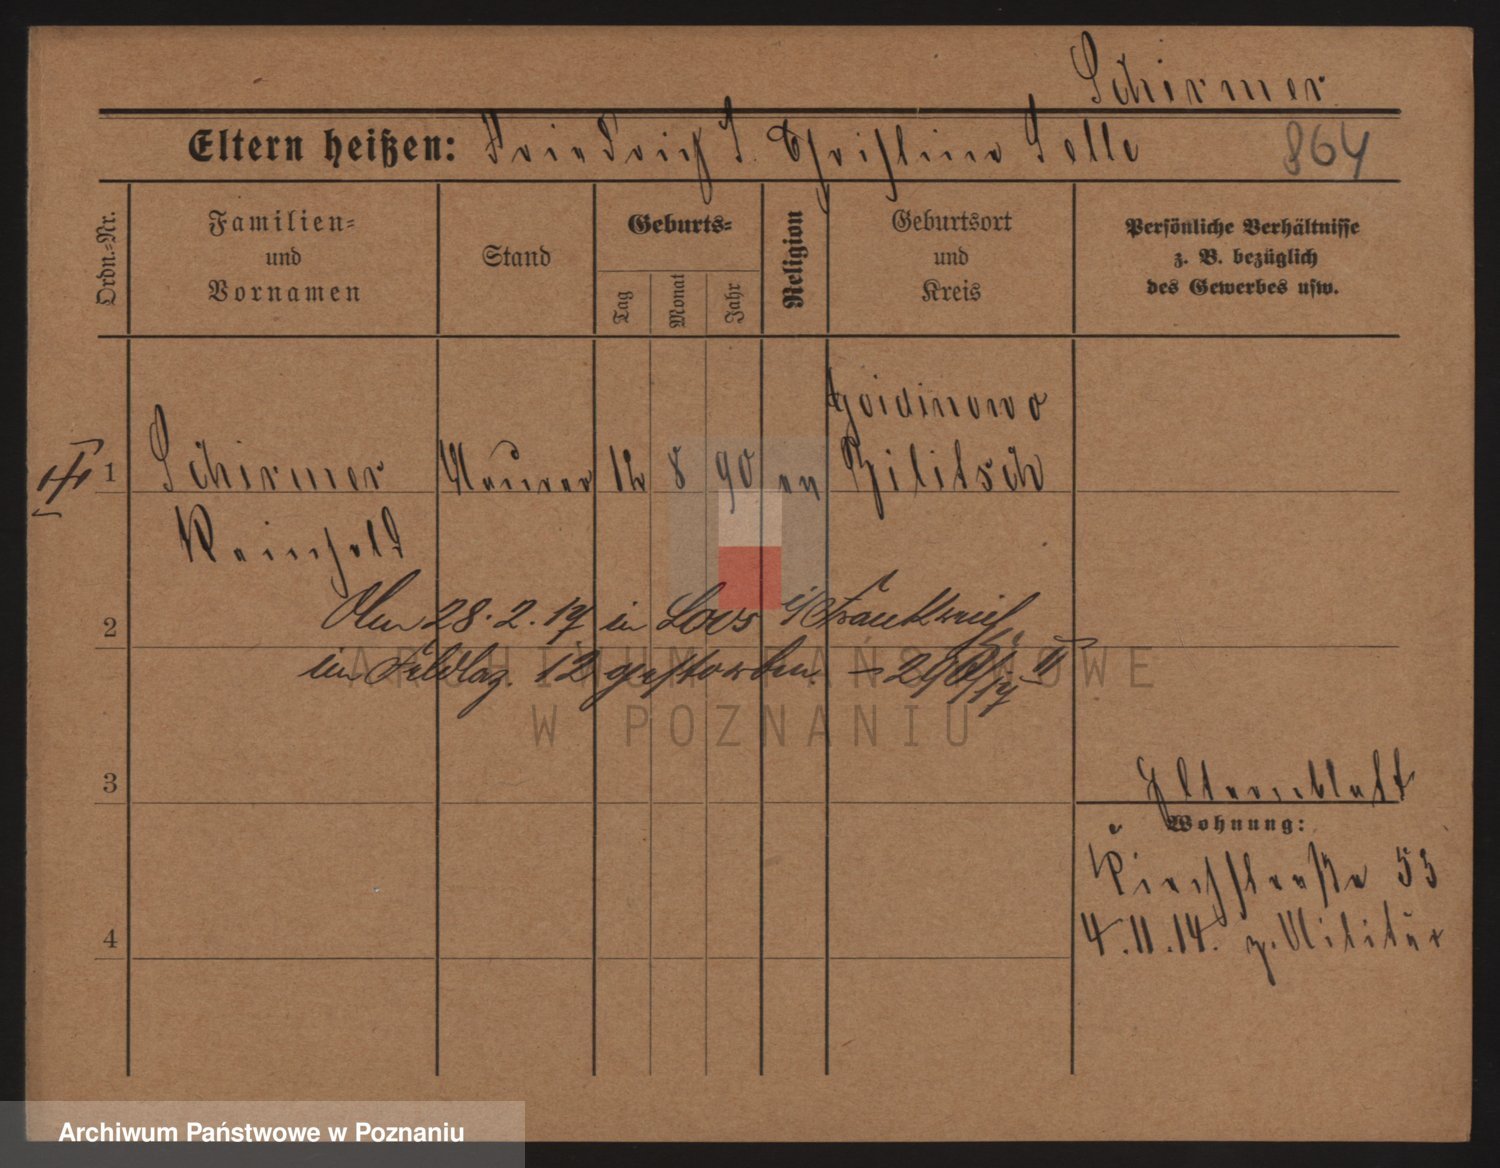 Schirmer
Eltern heißen: Friedrich S. Christine Selle 864
Ordn.=Nr.
Familien=
und
Vornamen
Stand
Geburts=
Tag
Monat
Jahr
Religion
Geburtsort
und
Kreis
Persönliche Verhältnisse
z. B. bezüglich
des Gewerbes usw.
1 Schirmer Maurer 12 8 90 ev
Militsch
Reinhold
2 Am 28.2.17 in Loos i/Frankreich
im Feldlaz. 12 gestorben.
ARCHIWUM PAŃSTWOWE
W POZNANIU
3 Elternblatt
Wohnung:
Kirchstraße 53
4 4.11.14. z. Militär
Archiwum Państwowe w Poznaniu